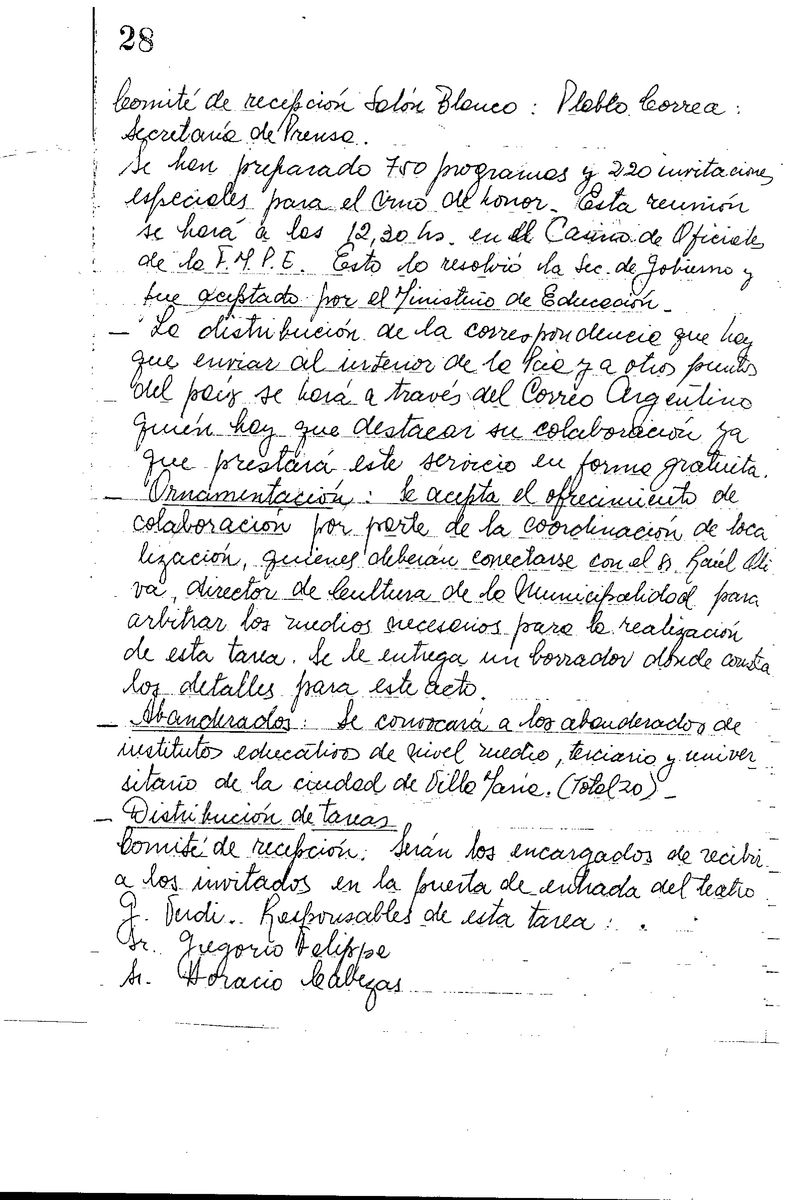 28
Comité de recepción Salón Blanco: Pablo Correa:
Secretaría de Prensa.
Se han preparado 750 programas y 220 invitaciones
especiales para el vino de honor. Esta reunión
se hará a las 12,30 hs. en el Casino de Oficiales
de la F.M.P.E. Esto lo resolvió la Sec. de Gobierno y
fue aceptado por el Ministerio de Educación_
_ La distribución de la correspondencia que hay
que enviar al interior de la Pcia y a otros puntos
_ del país se hará a través del Correo Argentino
quién hay que destacar su colaboración ya
que prestará este servicio en forma gratuita.
_ Ornamentación: Se acepta el ofrecimiento de
colaboración por parte de la coordinación de loca
lización, quienes deberán conectarse con el Sr. Raúl Oli
va, director de Cultura de la Municipalidad para
arbitrar los medios necesarios para la realización
de esta tarea. Se le entrega un borrador donde consta
los detalles para este acto.
_ Abanderados: Se convocará a los abanderados de
institutos educativos de nivel medio, terciario y univer
sitario de la ciudad de Villa María. (Total 20)_
_ Distribución de tareas
Comité de recepción: Serán los encargados de recibir
a los invitados en la puerta de entrada del teatro
G. Verdi.. Responsables de esta tarea:
Sr. Gregorio Felippe
Sr. Horacio Cabezas